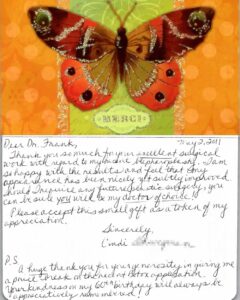 MERCI
May 2, 2011
Dear Dr. Frank,
Thank you so much for your excellent surgical
work with regard to my recent blepharoplasty. I am
so happy with the results and feel that my
appearance has been nicely yet subtly improved.
Should I require any future plastic surgery, you
can be sure you will be my doctor of choice!
Please accept this small gift as a token of my
appreciation.
Sincerely,
Cindi
P.S.
A huge thank you for your generosity in giving me
a price break at the next Botox application.
Your kindness on my 60th birthday will always be
appreciatively remembered!